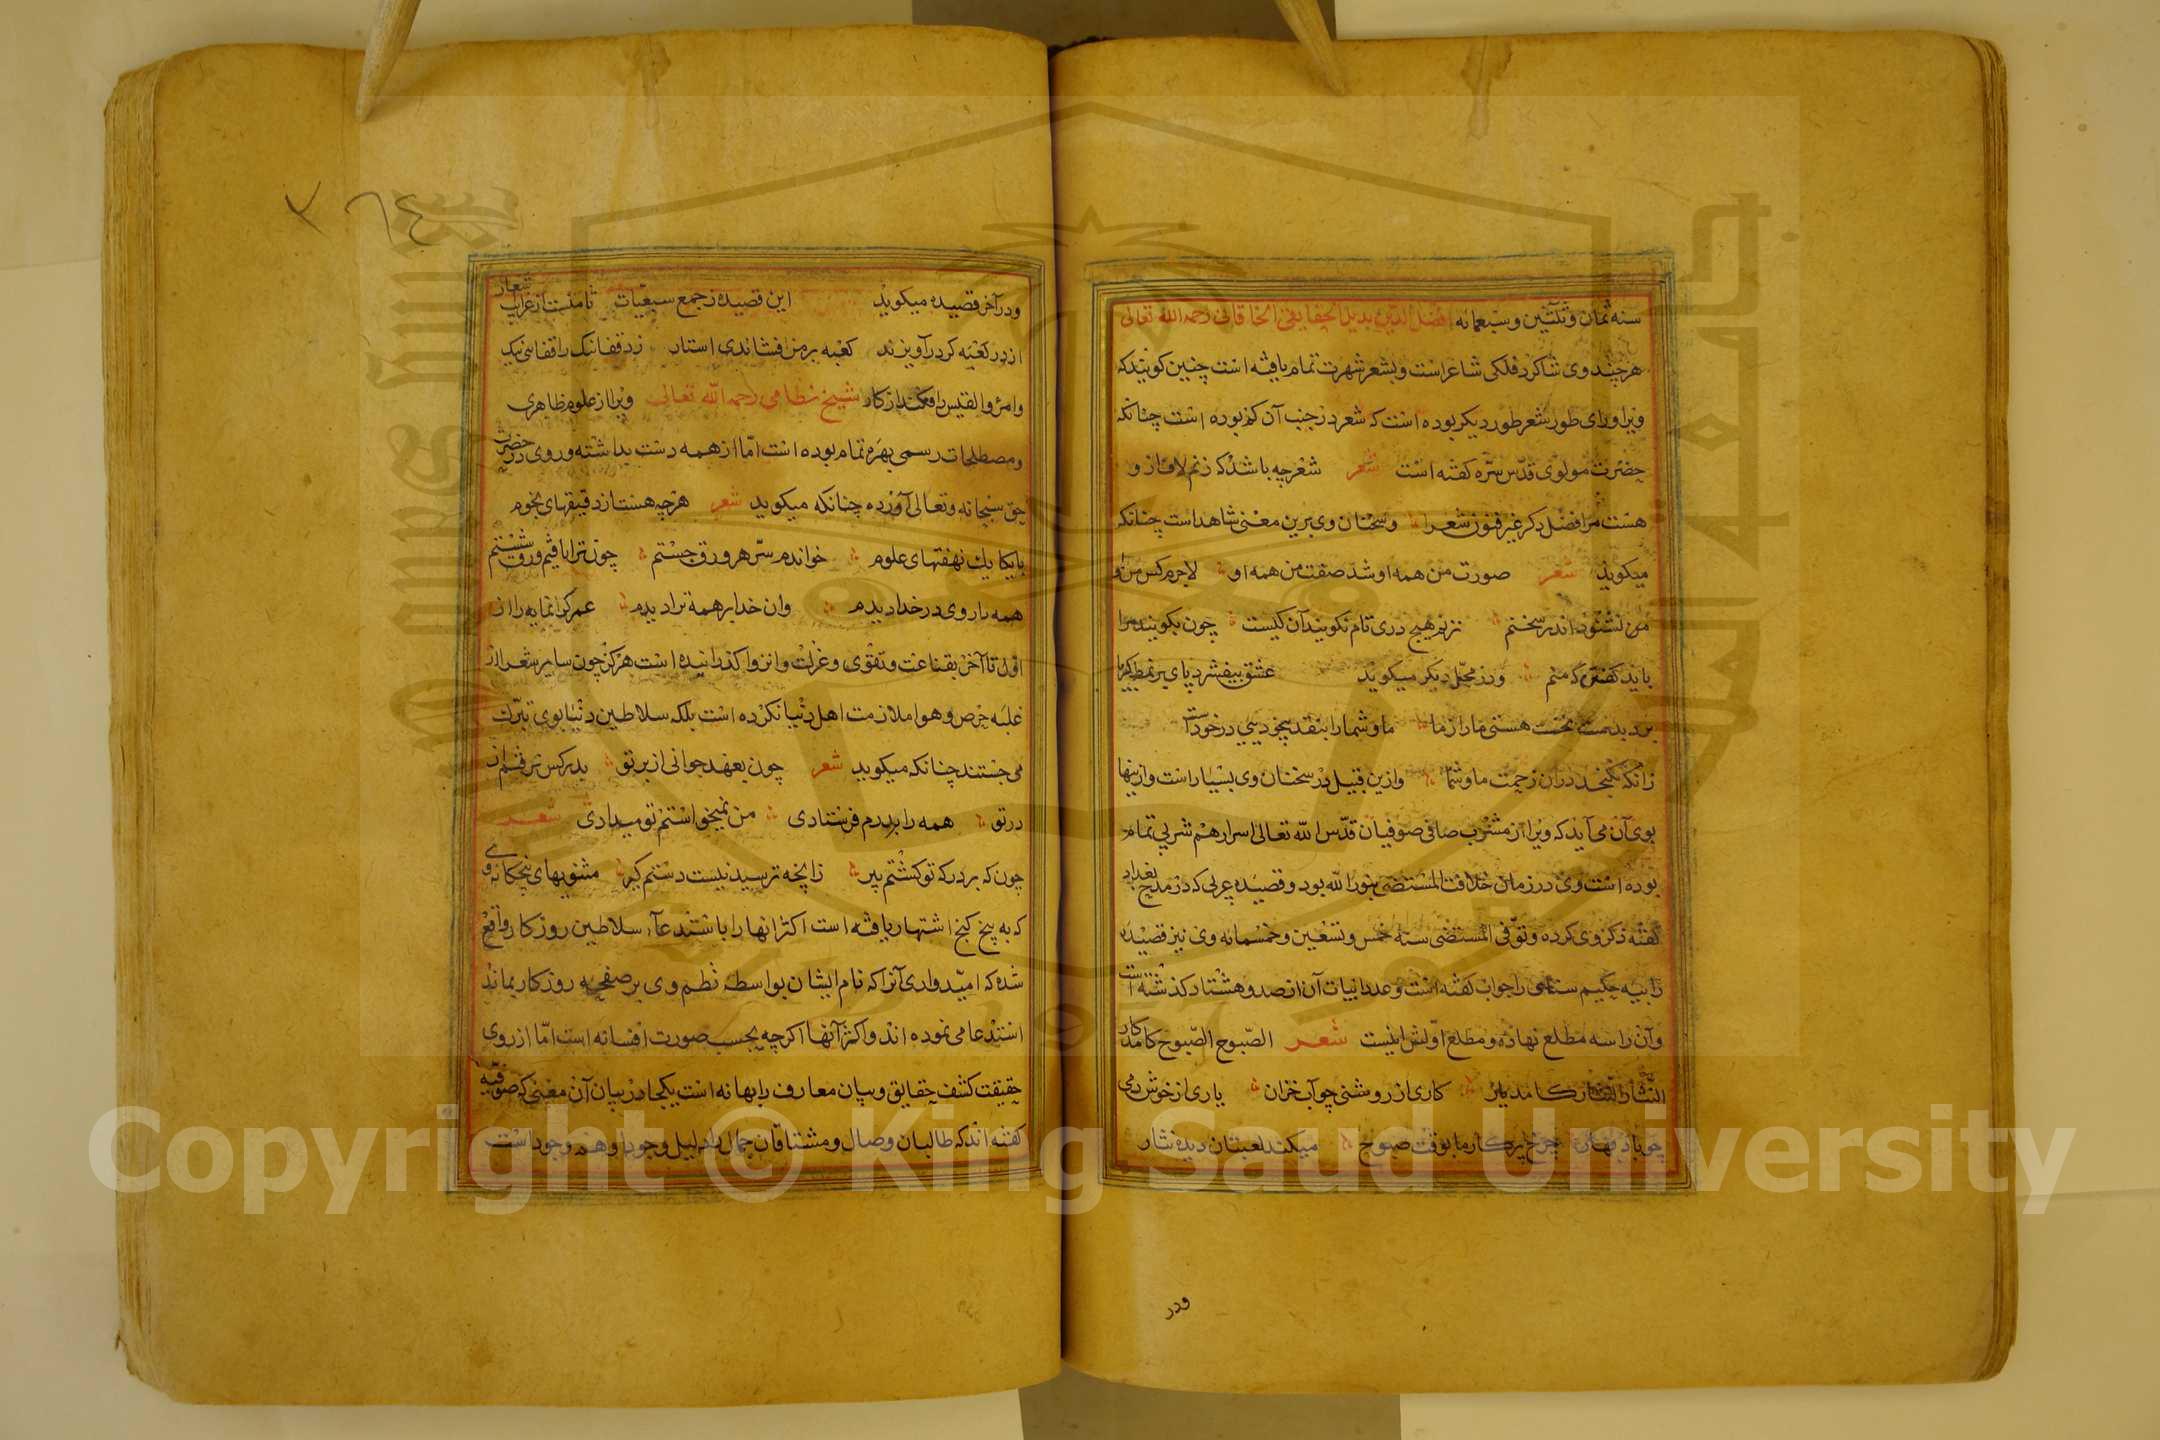 سنه ثمان وثلثین وسبعمائه افضل الدین بدیل الحقایقی الخاقانی رحمه الله تعالی
هرچند وی شاکرد فلکی شاعر است وبشعر شهرت تمام یافته است چنین کویند که
ویرا ورای طور شعر طور دیکر بوده است که شعر در جنب آن کم بوده است چنانکه
حضرت مولوی قدس سره کفته است شعر شعر چه باشد که زنم لاف از و
هست مرا فضل دکر غیر فنون شعرا وسخنان وی برین معنی شاهد است چنانکه
میکوید شعر صورت من همه او شد صفت من همه او لاجرم کس من و
من نشنود اندر سخنم نزنم هیچ دری تام نکویند آن کیست چون بکویند مرا
باید کفتن که منم ودر محل دیکر میکوید عشق بیفشرد پای بر نمط کبریا
برد بدست نخست هستی ما را ز ما ما و شما را بنقد بیخودیی در خورست
زانکه نکنجد در آن زحمت ما وشما وازین قبیل در سخنان وی بسیار است وازینها
بوی آن می آید که ویرا از مشرب صافی صوفیان قدس الله تعالی اسرارهم شربی تمام
بوده است وی در زمان خلافت المستضی بنور الله بود وقصیده عربی که در مدح بغداد
کفته ذکر وی کرده وتوفی المستضی سنه خمس وتسعین وخمسمائه وی نیز قصیده
راییه حکیم سنائی را جواب کفته است وعدد ابیات آن از صد وهشتاد کذشته است
وآن را سه مطلع نهاده ومطلع اولش اینست شعر الصبوح الصبوح کامد کار
النثار النثار کامد یار کاری از روشنی چو آب خزان یاری از خوش دمی
چو باد بهار چرخ بر کار ما بوقت صبوح میکند لعبتان دیده نثار
ودر
ودر آخر قصیده میکوید این قصیده ز جمع سبعیات ثامنت از غرایب اشعار
از در کعبه کر در آویزند کعبه بر من فشاندی استار زد قفا نبک را قفائی نیک
وامرؤ القیس را فکند از کار شیخ نظامی رحمه الله تعالی ویرا از علوم ظاهری
ومصطلحات رسمی بهره تمام بوده است اما از همه دست بداشته وروی در حضرت
حق سبحانه وتعالی آورده چنانکه میکوید شعر هرچه هست از دقیقهای نجوم
با یکایک نهفتهای علوم خواندم سر هر ورق جستم چون ترا یافتم ورق شستم
همه را روی در خدا دیدم وان خدا بر همه ترا دیدم عمر کرانمایه را از
اول تا آخر بقناعت وتقوی وعزلت وانزوا کذرانیده است هرکز چون سایر شعرا از
غلبه حرص وهوا ملازمت اهل دنیا نکرده است بلکه سلاطین دنیا بوی تبرک
می جستند چنانکه میکوید شعر چون بعهد جوانی از بر تو بدر کس نرفتم از
در تو همه را بر درم فرستادی من نمیخواستم تو میدادی شعر
چون که بر درکه تو کشتم پیر زانچه ترسیدنیست دستم کیر مثنویهای پنجکانه وی
که به پنج کنج اشتهار یافته است اکثر انها را باستدعآء سلاطین روزکار واقع
شده که امیدواری آنرا که نام ایشان بواسطه نظم وی بر صفحه روزکار بماند
استدعا می نموده اند واکثر آنها اکرچه بحسب صورت افسانه است اما از روی
حقیقت کشف حقایق وبیان معارف را بهانه است یکجا در بیان آن معنی که صوفیه
کفته اند که طالبان وصال ومشتاقان جمال را دلیل وجود او هم وجود اوست
Copyright © King Saud University